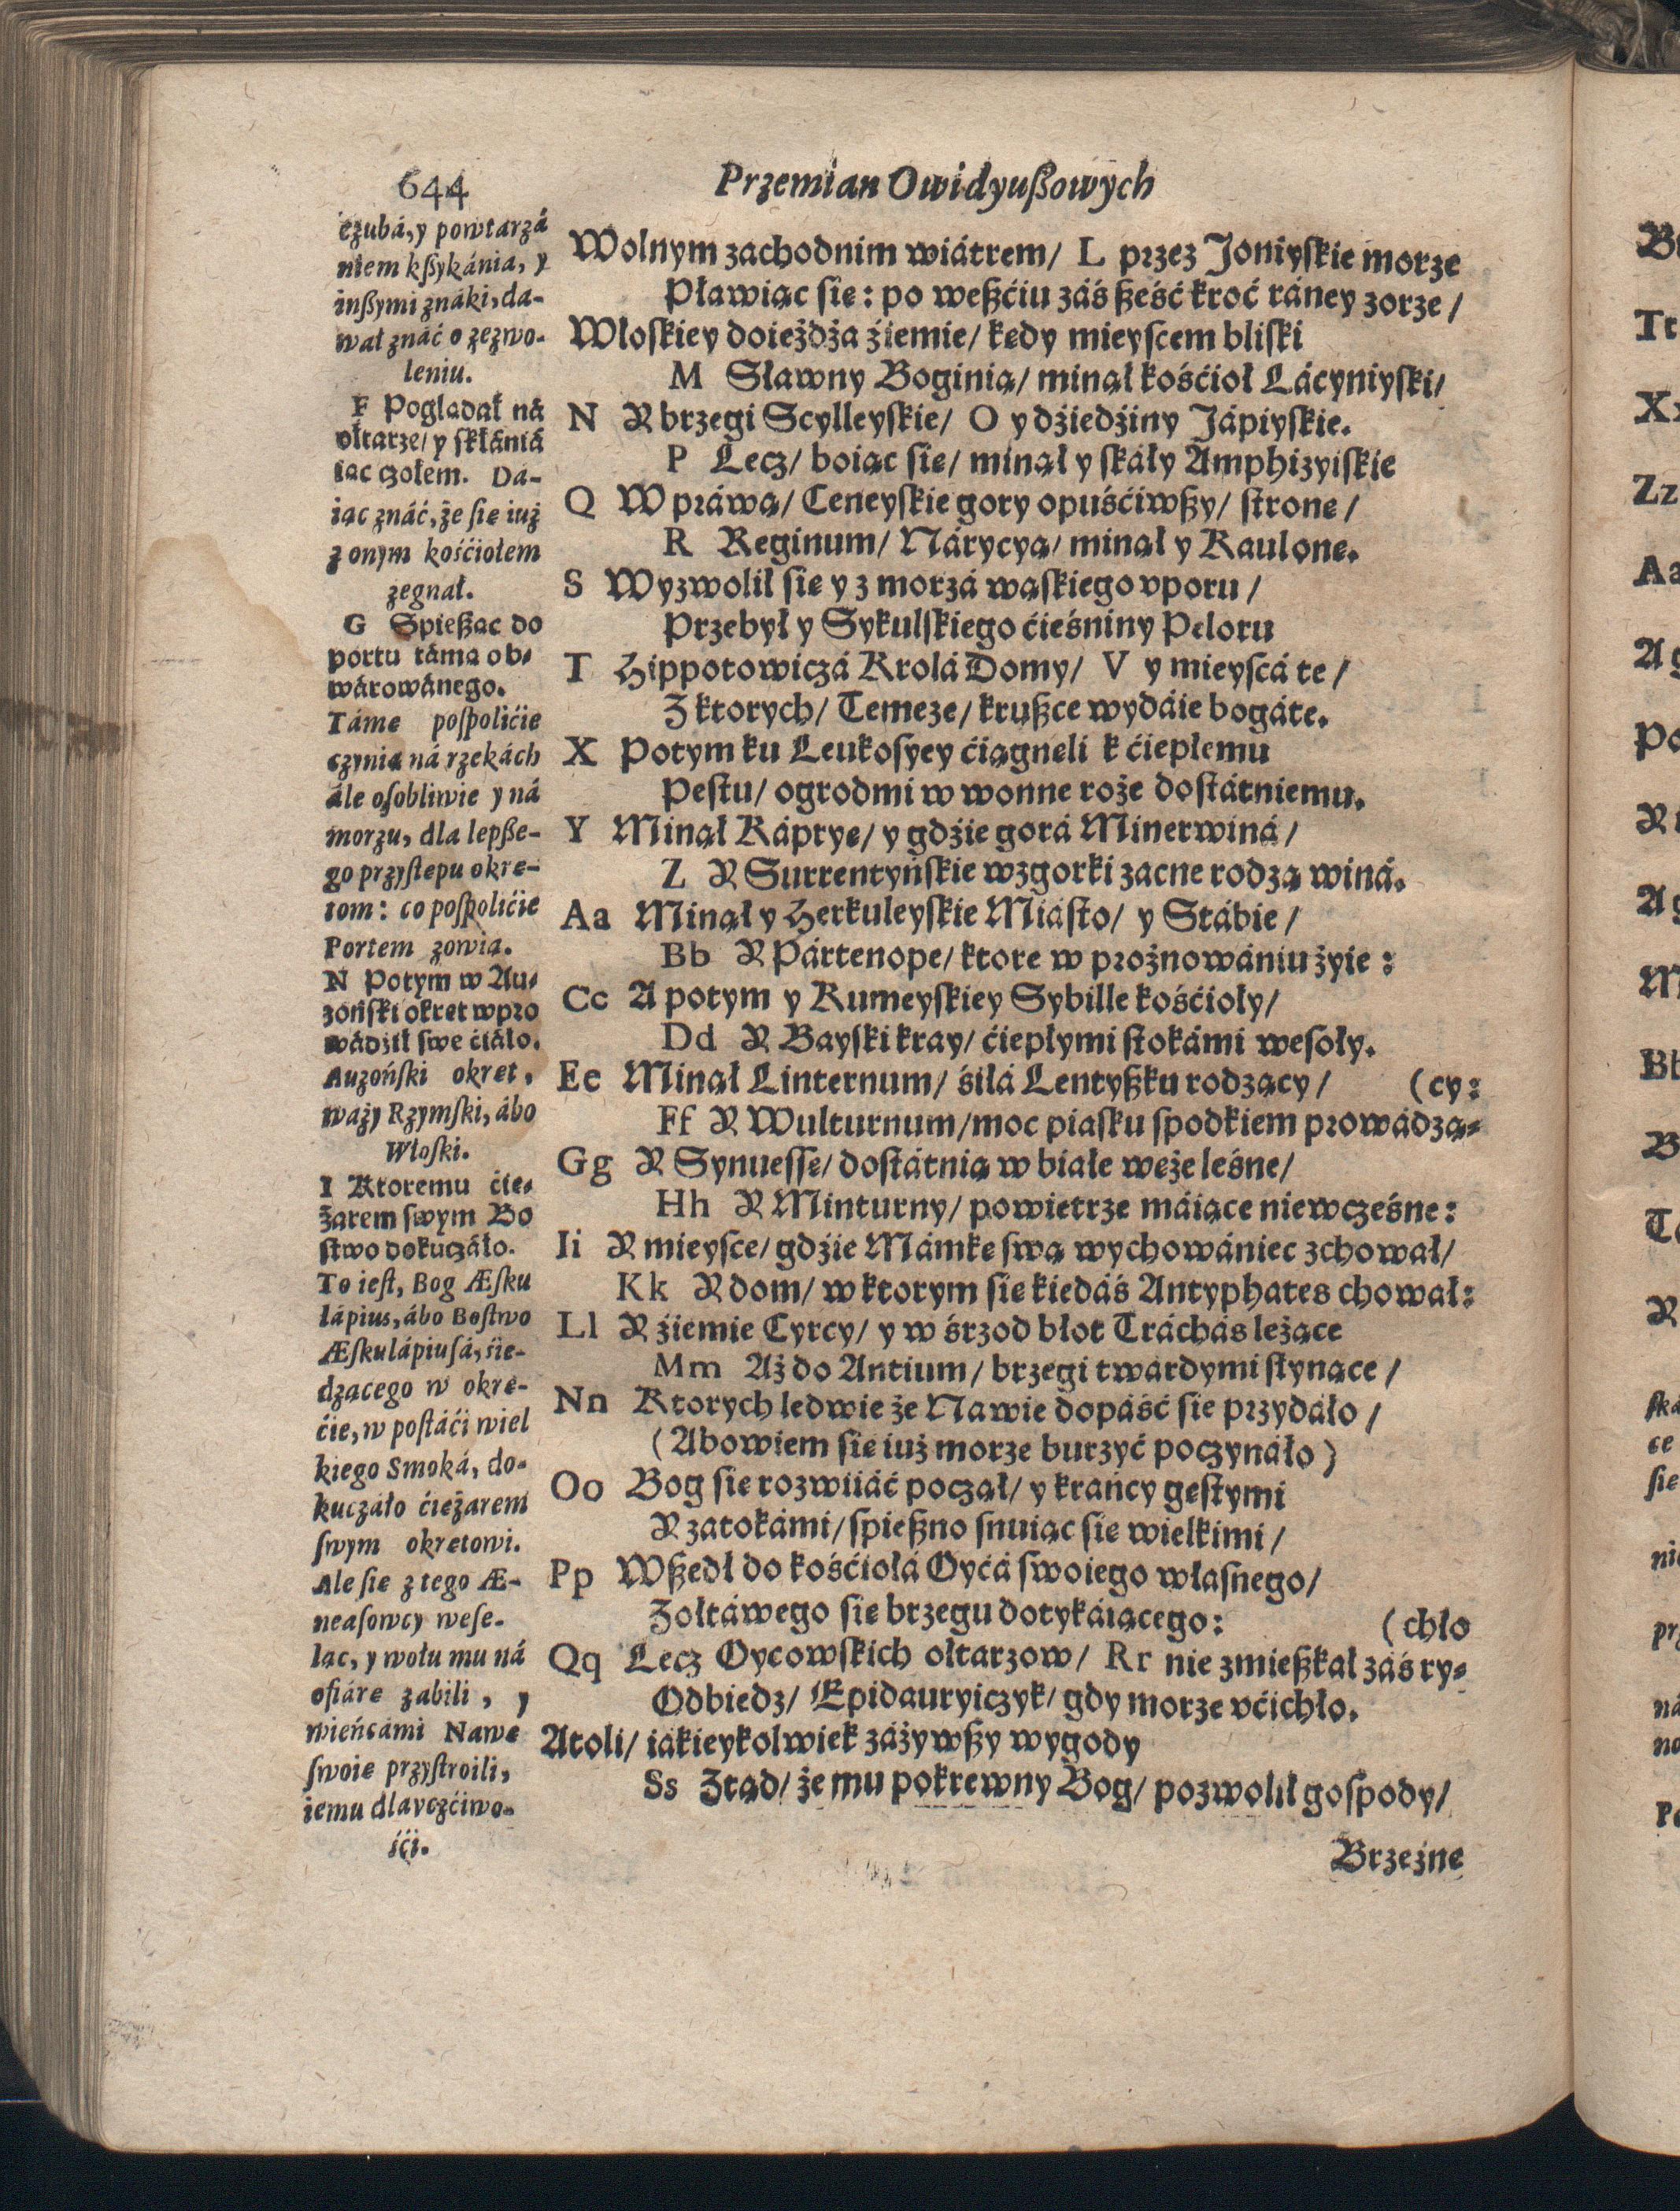 644
Przemian Owidyußowych
czubá, y powtarzá
niem kßykánia, y
inßymi znáki, da-
wał znáć o zezwo-
leniu.
F Poglądał ná
ołtarze/ y skłániá
iąc czołem. Dá-
iąc znáć, że sie iuż
z onym kośćiołem
żegnał.
G Spießąc do
portu támą ob-
wárowánego.
Támę pospolićie
czynią ná rzekách
ále osobliwie y ná
morzu, dla lepße-
go przystępu okrę-
tom: co pospolićie
Portem zowią.
N Potym w Au-
zoński okręt wpro
wádźił swe ćiáło.
Auzoński okręt,
waży Rzymski, ábo
Włoski.
I Ktoremu cię-
żarem swym Bo
stwo dokuczáło.
To iest, Bog Æsku
lápius, ábo Bostwo
Æskulápiusá, sie-
dzącego w okrę-
ćie, w postáći wiel
kiego Smoká, do-
kuczáło ćiężarem
swym okrętowi.
Ale sie z tego Æ-
neasowcy wese-
ląc, y wołu mu ná
ofiárę zabili, y
wieńcámi Nawę
swoię przystroili,
iemu dla vczćiwo-
śći.
Wolnym zachodnim wiátrem/ L przez Joniyskie morze
Pławiąc sie: po weßćiu záś ßeść kroć ráney zorze/
Włoskiey doieżdża źiemie/ kędy mieyscem bliski
M Sławny Boginią/ minął kośćioł Lácyniyski/
N Y brzegi Scylleyskie/ O y dźiedźiny Jápiyskie.
P Lecz/ boiąc sie/ minął y skáły Amphizyiskie
Q W práwą/ Ceneyskie gory opuśćiwßy/ stronę/
R Reginum/ Nárycyą/ minął y Kaulonę.
S Wyzwolił sie y z morzá wąskiego vporu/
Przebył y Sykulskiego ćieśniny Peloru
T Hippotowiczá Krolá Domy/ V y mieyscá te/
Z ktorych/ Temeze/ krußce wydáie bogáte.
X Potym ku Leukosyey ćiągnęli k ćiepłemu
Pestu/ ogrodmi w wonne roże dostátniemu.
Y Minął Káprye/ y gdźie gorá Minerwiná/
Z Y Surrentyńskie wzgorki zacne rodzą winá.
Aa Minął y Herkuleyskie Miásto/ y Stábie/
Bb Y Pártenope/ ktore w prożnowániu żyie:
Cc A potym y Kumeyskiey Sybille kośćioły/
Dd Y Bayski kray/ ćiepłymi stokámi wesoły.
Ee Minął Linternum/ śiłá Lentyßku rodzący/ (cy:
Ff Y Wulturnum/ moc piasku spodkiem prowádzą-
Gg Y Synuesse/ dostátnią w białe węże leśne/
Hh Y Minturny/ powietrze máiące niewcześne:
Ii Y mieysce/ gdźie Mámkę swą wychowániec zchował/
Kk Y dom/ w ktorym sie kiedáś Antyphates chował:
Ll Y źiemię Cyrcy/ y w śrzod błot Tráchás leżące
Mm Aż do Antium/ brzegi twárdymi słynące/
Nn Ktorych ledwie że Nawie dopáść sie przydáło/
(Abowiem sie iuż morze burzyć poczynáło)
Oo Bog sie rozwiiáć począł/ y kráńcy gęstymi
Y zatokámi/ spießno snuiąc sie wielkimi/
Pp Wßedł do kośćiołá Oycá swoiego własnego/
Zołtáwego sie brzegu dotykáiącego: (chło
Qq Lecz Oycowskich ołtarzow/ Rr nie zmießkał záś ry-
Odbiedz/ Epidauryiczyk/ gdy morze vćichło.
Atoli/ iákieykolwiek záżywßy wygody
Ss Ztąd/ że mu pokrewny Bog/ pozwolił gospody/
Brzeźne